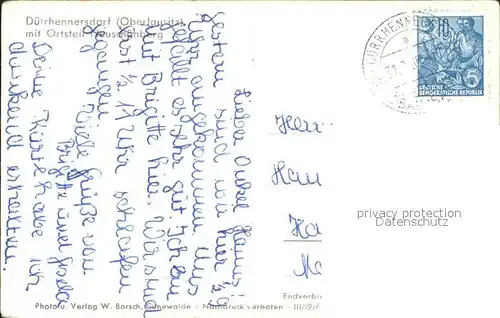 Dürrhennersdorf (Oberlausitz)
mit Ortsteil Neuschönberg
Lieber Onkel Heinz!
Gestern sind wir hier 1/2 9
Uhr angekommen. Uns
gefällt es sehr gut. Ich bin
mit Brigitte hier. Wir sind
erst 1/2 11 Uhr schlafen
gegangen.
Viele Grüße von
Brigitte und
Deine Karte habe ich
dankend erhalten.
Herr
Ha
DÜRRHENN
10
5
DEUTSCHE
DEMOKRATISCHE REPUBLIK
privacy protection
Datenschutz
Photo u. Verlag W. Borsch, Cunewalde - Nachdruck verboten - III/19/F